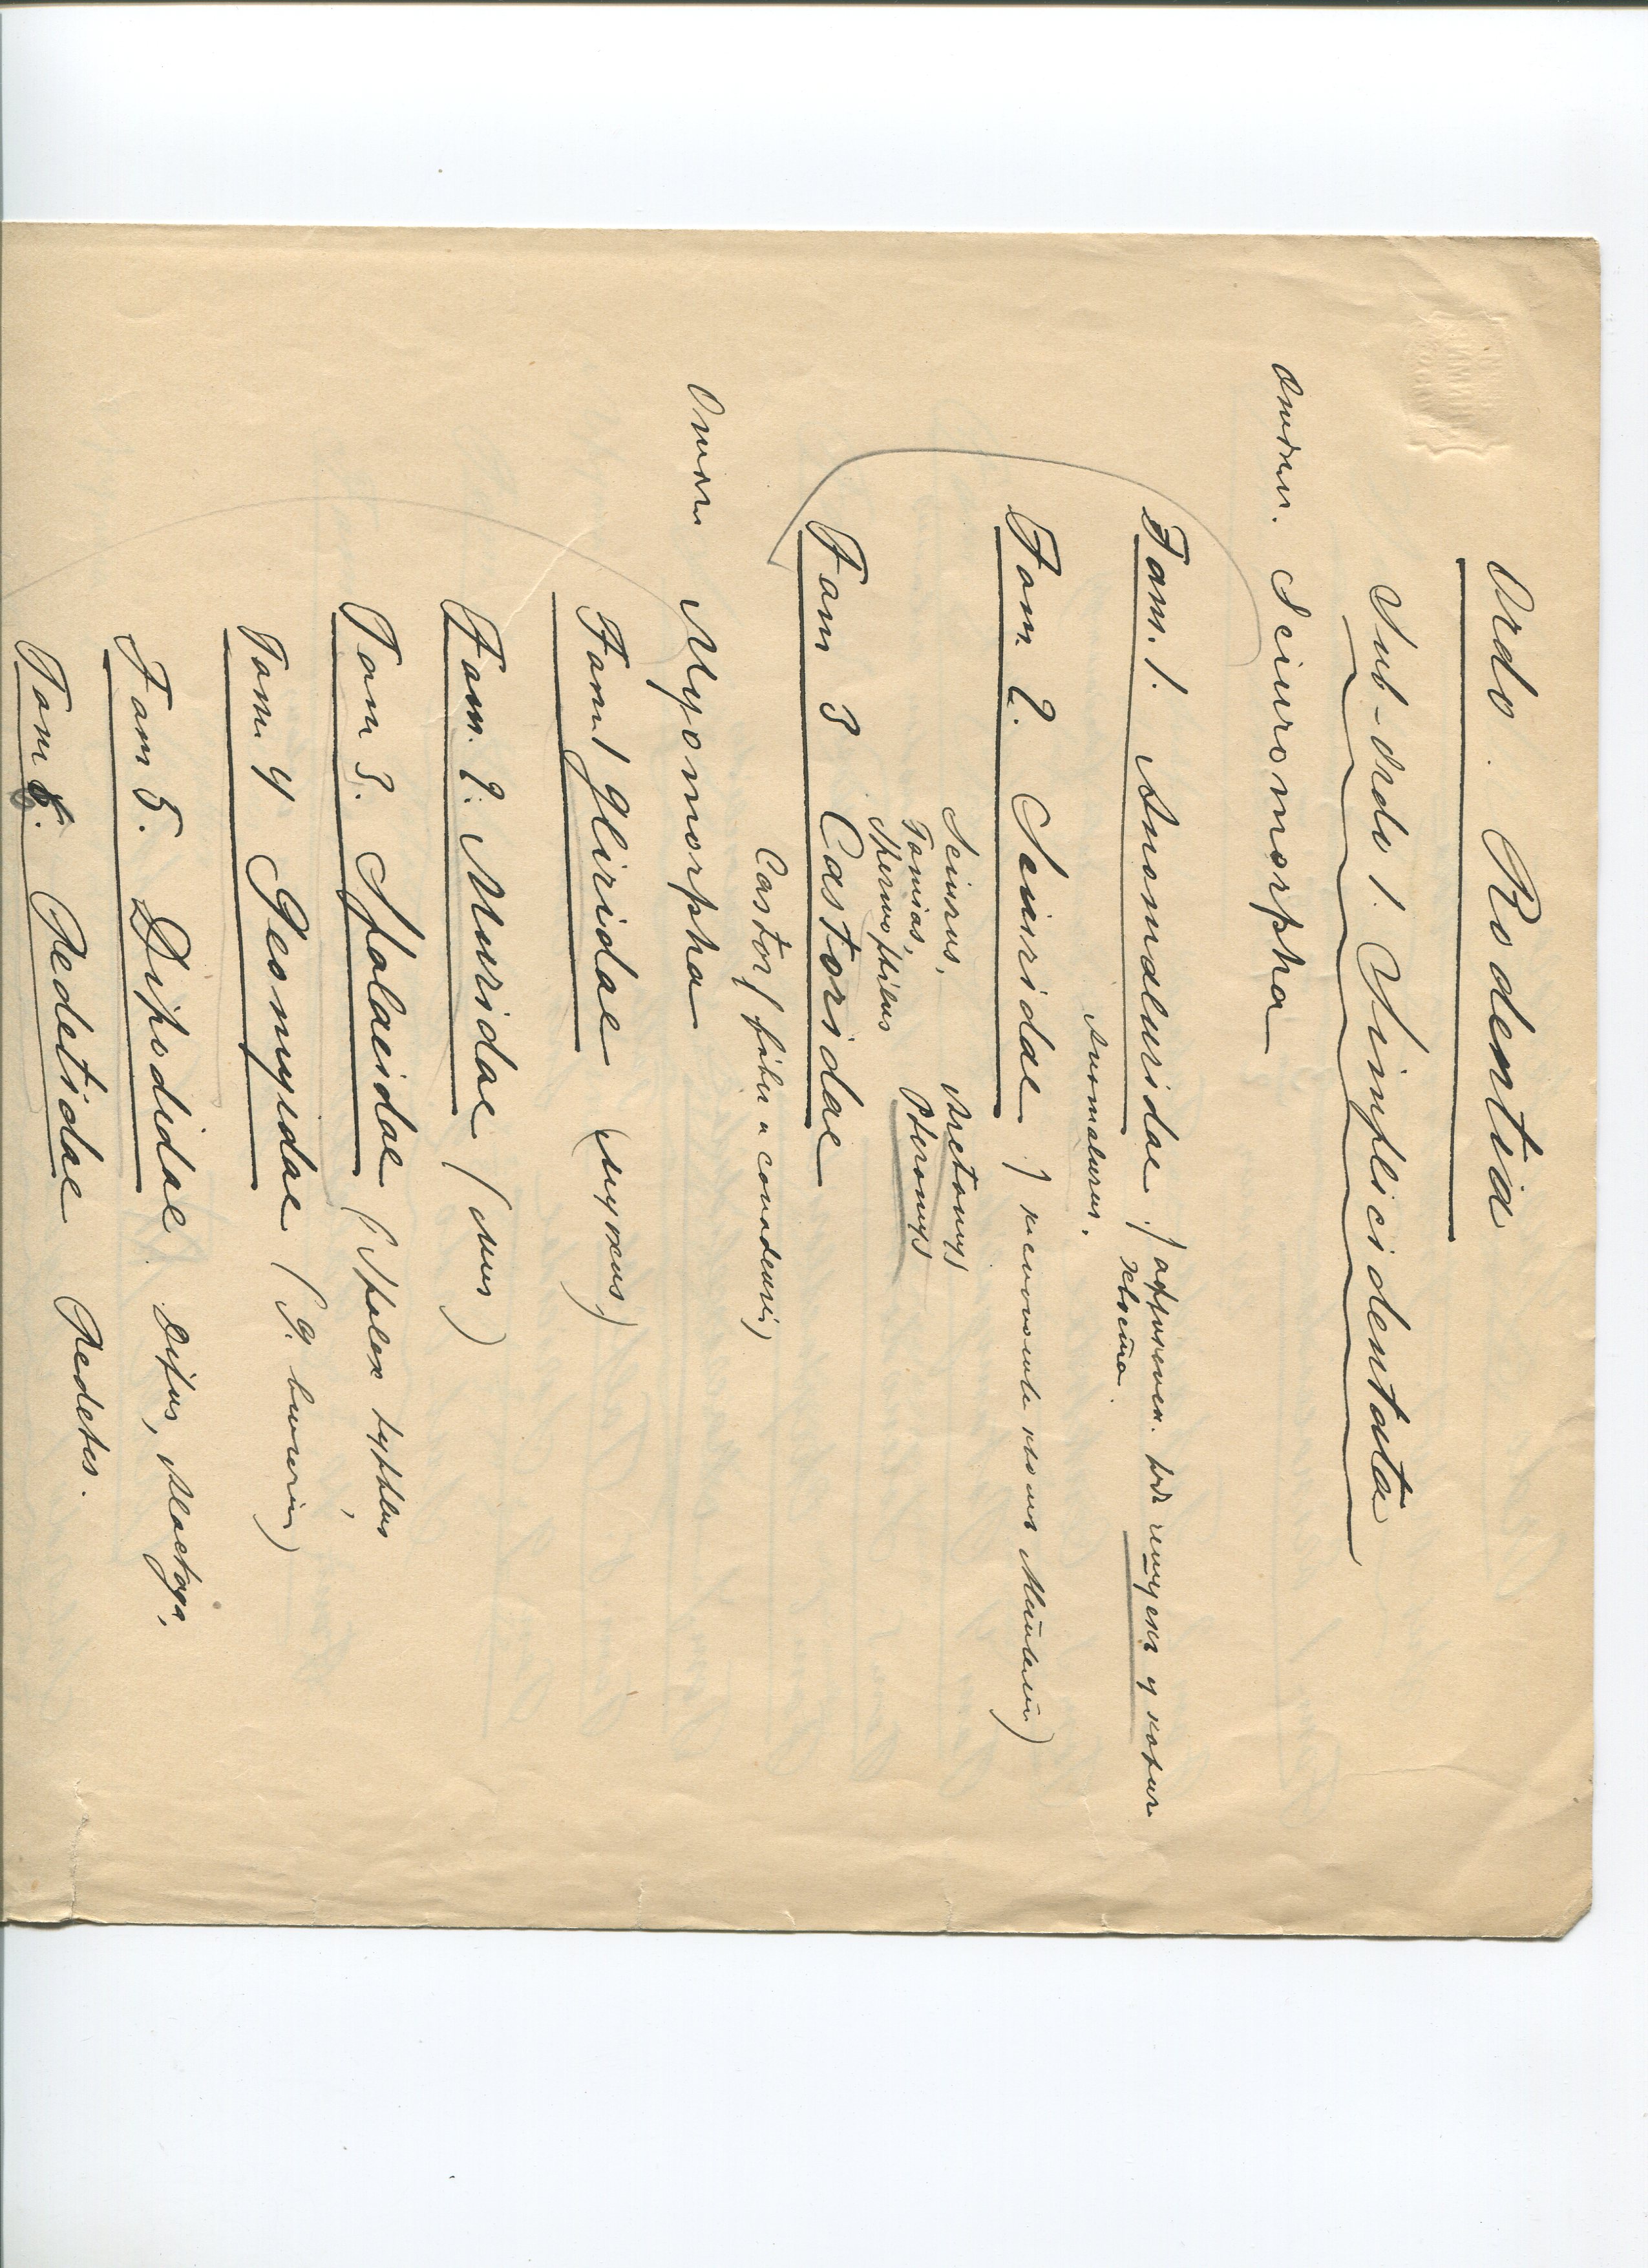 Ordo. Rodentia
Sub-ordo 1. Simplicidentata
Sciuromorpha
Fam. 1. Anomaluridae (африкан.
Anomalurus.
Fam. 2. Sciuridae
Sciurus, Arctomys
Tamias, Pteromys
Spermophilus
Fam 3 Castoridae
Castor (fiber и canadensis)
Myomorpha
Fam 1 Gliridae (Myoxus)
Fam. 2. Muridae (Mus)
Fam 3. Spalacidae (Spalax typhlus
Fam 4 Geomyidae (G. bursarius)
Fam 5. Dipodidae. Dipus, Alactaga,
Fam 6. Pedetidae Pedetes.